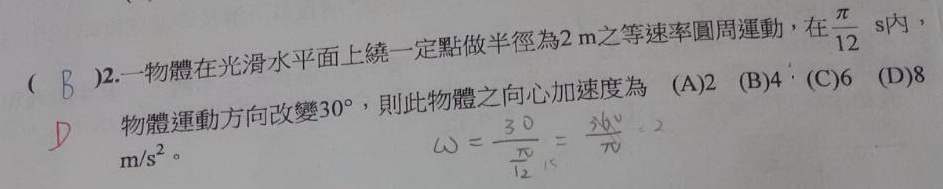 ( B )2.一物體在光滑水平面上繞一定點做半徑為2 m之等速率圓周運動，在π/12 s內，
D 物體運動方向改變30°，則此物體之向心加速度為 (A)2 (B)4 (C)6 (D)8
m/s²。
ω = 30/(π/12) = 360/π = 2